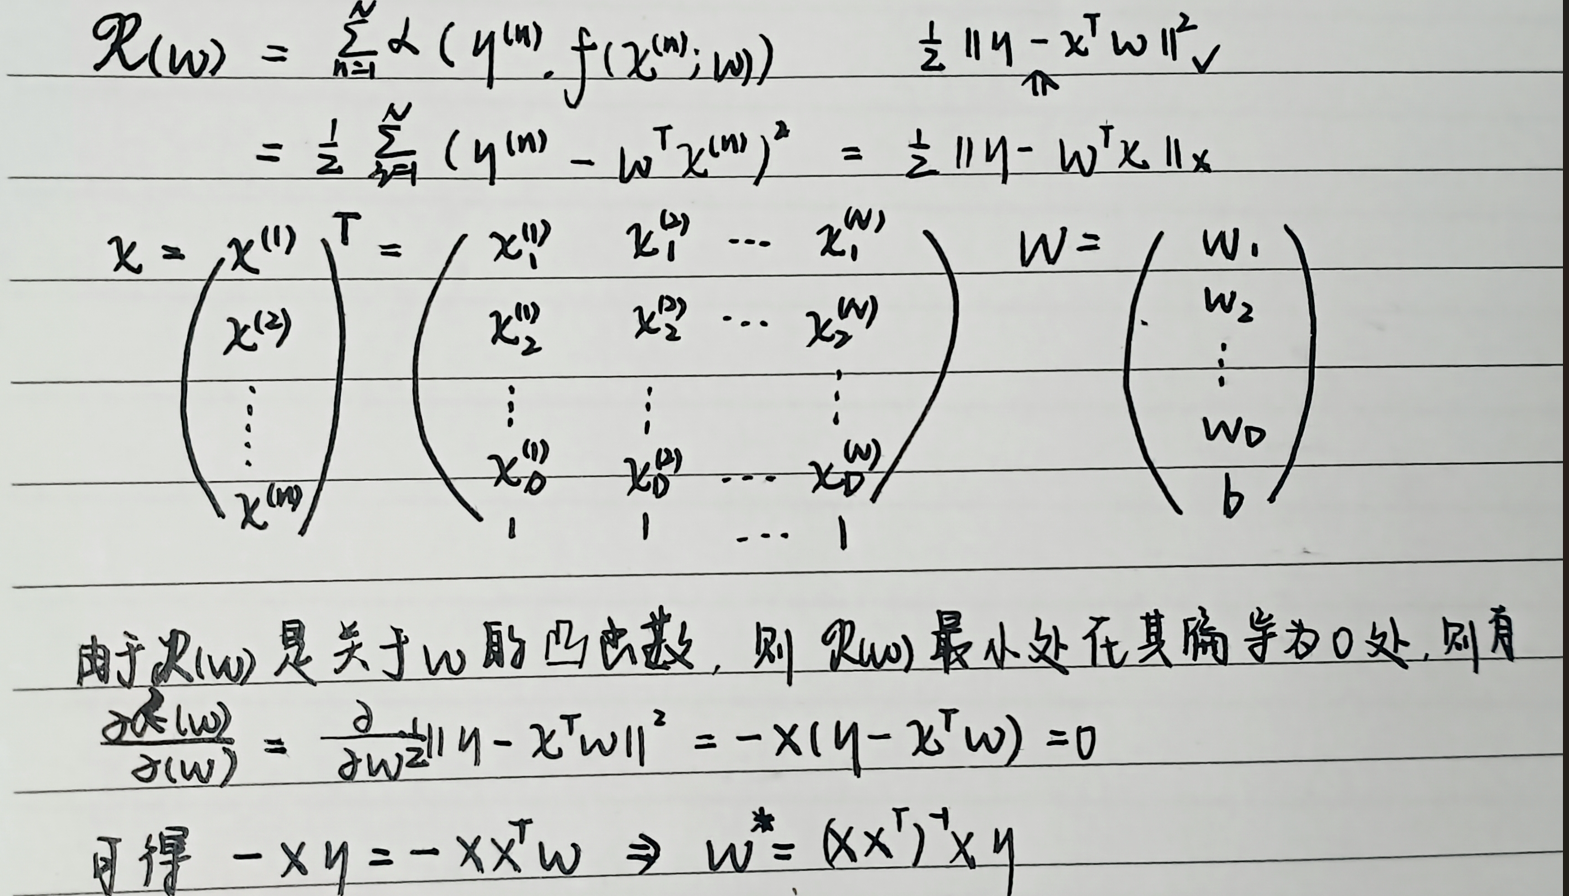 R(w) = ∑_{n=1}^{N} L(y^{(n)}, f(x^{(n)}; w))    ½‖y − x^T w‖² ✓
⇑
= ½ ∑_{n=1}^{N} (y^{(n)} − w^T x^{(n)})² = ½‖y − w^T x‖ ×
x = (x^{(1)} x^{(2)} ⋮ x^{(n)})^T = (x_1^{(1)} x_1^{(2)} ⋯ x_1^{(N)}    w = (w_1
x_2^{(1)} x_2^{(2)} ⋯ x_2^{(N)}    w_2
⋮ ⋮ ⋮    ⋮
x_D^{(1)} x_D^{(2)} ⋯ x_D^{(N)})    w_D
1 1 ⋯ 1    b)
由于R(w)是关于w的凸函数,则R(w)最小处在其偏导为0处,则有
∂R(w)/∂(w) = ∂/∂w ½‖y − x^T w‖² = −X(y − x^T w) = 0
可得 −Xy = −XX^T w ⇒ w* = (XX^T)^{-1} X y